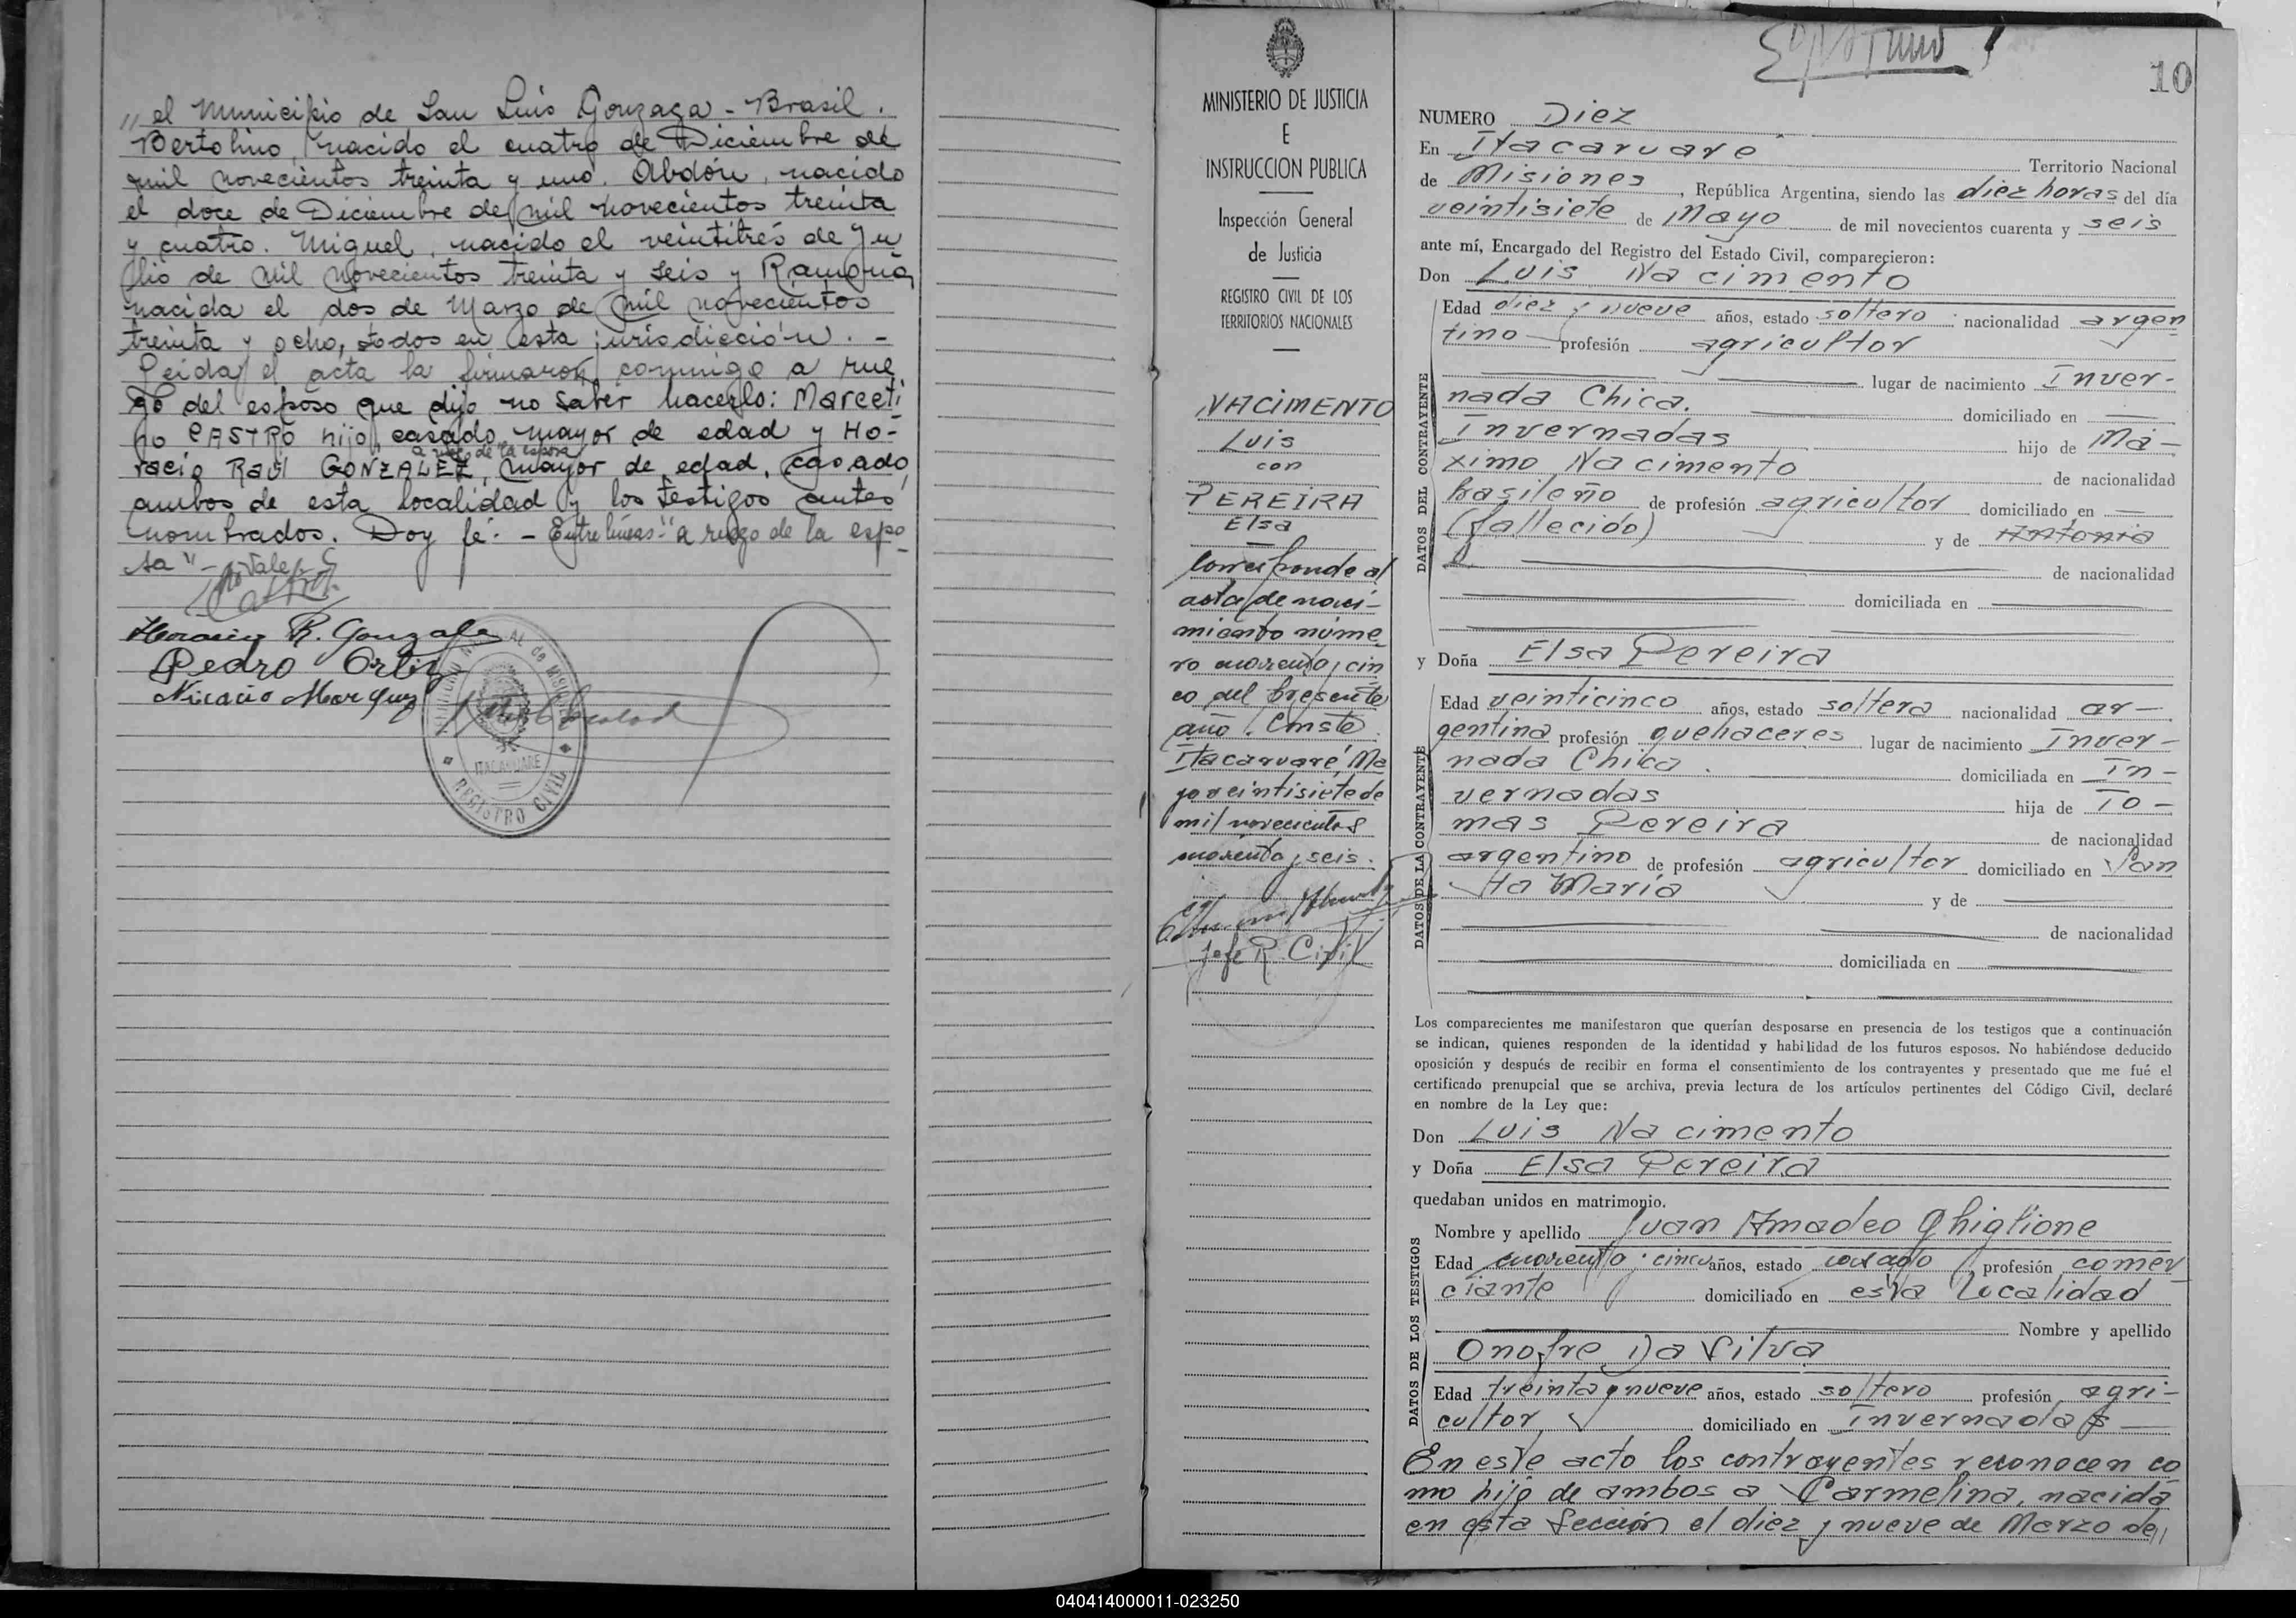 " el Municipio de San Luis Gonzaga - Brasil.
Bertolino, nacido el cuatro de Diciembre de
mil novecientos treinta y uno. Abdón, nacido
el doce de Diciembre de mil novecientos treinta
y cuatro. Miguel, nacido el veintitrés de Ju
lio de mil novecientos treinta y seis y Ramona,
nacida el dos de Marzo de mil novecientos
treinta y ocho, todos en esta jurisdicción. -
Leida el acta la firmaron conmigo a rue
go del esposo que dijo no saber hacerlo: Marceli
no CASTRO hijo, casado, mayor de edad y Ho-
a ruego de la esposa
racio Raúl GONZALEZ, mayor de edad, casado,
ambos de esta localidad y los testigos antes
nombrados. Doy fé. - Entre líneas: "a ruego de la espo-
sa" - Vale.
Horacio R. Gonzalez
Pedro Ortiz
Nicacio Marquez
ITACARUARE
REGISTRO CIVIL
MINISTERIO DE JUSTICIA
E
INSTRUCCION PUBLICA
Inspección General
de Justicia
REGISTRO CIVIL DE LOS
TERRITORIOS NACIONALES
NACIMENTO
Luis
con
PEREIRA
Elsa
Corresponde al
acta de naci-
miento núme
ro cuarenta y cin
co del presente
año. Conste
Itacaruaré, Ma
yo veintisiete de
mil novecientos
cuarenta y seis.
Jefe R. Civil
10
NUMERO Diez
En Itacaruare Territorio Nacional
de Misiones, República Argentina, siendo las diez horas del día
veintisiete de Mayo de mil novecientos cuarenta y seis
ante mí, Encargado del Registro del Estado Civil, comparecieron:
Don Luis Nacimento
DATOS DEL CONTRAYENTE
Edad diez y nueve años, estado soltero nacionalidad argen
tino profesión agricultor
lugar de nacimiento Inver-
nada Chica. domiciliado en
Invernadas hijo de Má-
ximo Nacimento de nacionalidad
basileño de profesión agricultor domiciliado en
(fallecido) y de Antonia
de nacionalidad
domiciliada en
y Doña Elsa Pereira
DATOS DE LA CONTRAYENTE
Edad veinticinco años, estado soltera nacionalidad ar-
gentina profesión quehaceres lugar de nacimiento Inver-
nada Chica. domiciliada en In-
vernadas hija de To-
mas Pereira de nacionalidad
argentino de profesión agricultor domiciliado en San
ta Maria y de
de nacionalidad
domiciliada en
Los comparecientes me manifestaron que querían desposarse en presencia de los testigos que a continuación
se indican, quienes responden de la identidad y habilidad de los futuros esposos. No habiéndose deducido
oposición y después de recibir en forma el consentimiento de los contrayentes y presentado que me fué el
certificado prenupcial que se archiva, previa lectura de los artículos pertinentes del Código Civil, declaré
en nombre de la Ley que:
Don Luis Nacimento
y Doña Elsa Pereira
quedaban unidos en matrimonio.
DATOS DE LOS TESTIGOS
Nombre y apellido Juan Amadeo Ghiglione
Edad cuarenta y cinco años, estado casado profesión comer
ciante domiciliado en esta localidad
Nombre y apellido
Onofre Da Silva
Edad treinta y nueve años, estado soltero profesión agri-
cultor domiciliado en Invernadas
En este acto los contrayentes reconocen co
mo hijo de ambos a Carmelina, nacida
en esta Sección el diez y nueve de Marzo de "
040414000011-023250